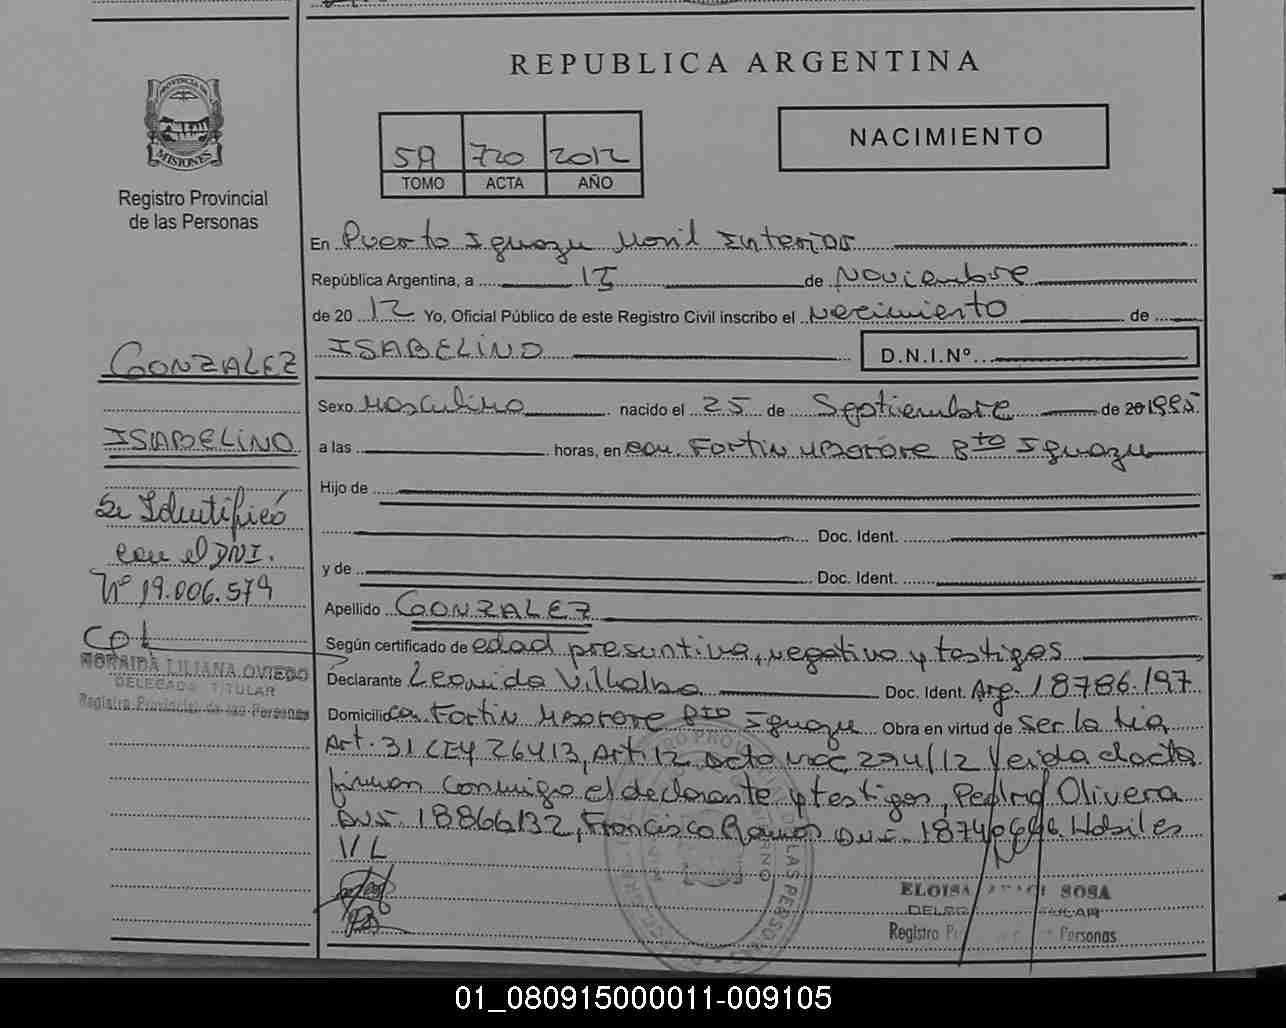 REPUBLICA ARGENTINA
PROVINCIA DE
MISIONES
Registro Provincial
de las Personas
5A 720 2012
TOMO ACTA AÑO
NACIMIENTO
En Puerto Iguazu Movil Interior
República Argentina, a 15 de Noviembre
de 20 12 Yo, Oficial Público de este Registro Civil inscribo el Necimiento de
ISABELINO D.N.I.Nº
GONZALEZ
ISABELINO
Se Identificó
con el DNI.
Nº 19.006.579
NORAIDA LILIANA OVIEDO
DELEGADA TITULAR
Registro Provincial de las Personas
Sexo Masculino nacido el 25 de Septiembre de 20 1995.
a las horas, en com. Fortin Mborore Pto Iguazu
Hijo de
Doc. Ident.
y de Doc. Ident.
Apellido GONZALEZ
Según certificado de edad presuntiva, negativo y testigos
Declarante Leonida Villalba Doc. Ident. Arg. 18786197
Domicilio com Fortin Mborore Pto Iguazu Obra en virtud de ser la tia
Art. 31 LEY 26413, Art. 12 Dcto Nac 294/12 Leida el acta
firman conmigo el declarante y testigos, Pedro Olivera
DNI. 18866132, Francisco Ramos DNI. Habiles
VL
ELOISA SOSA
Registro Personas
01_080915000011-009105